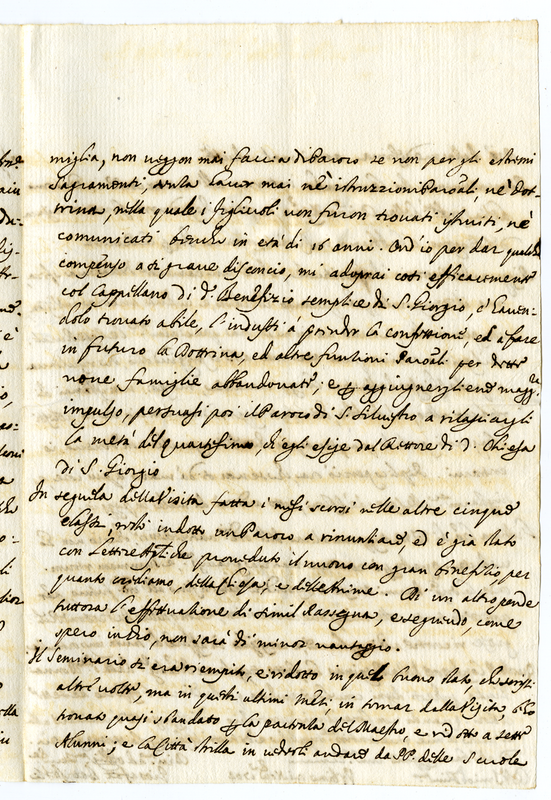 miglia, non veggon mai faccia di Paroco se non per gli estremi
Sagramenti, senza aver mai nè istruzzioni Paroāli, nè Dot-
trina, nella quale i figliuoli non furon trovati istruiti, nè
comunicati benche in età di 16 anni. Ond'io per dar qualche
compenso a sì grave disconcio, mi adoprai così efficacemente
col Cappellano di d.º Benefizio semplice di S. Giorgio, e aven-
dolo trovato abile, l'indussi à prender la confessione, ed a fare
in futuro la Dottrina, ed altre funtioni Paroāli per dette
nove famiglie abbandonate; e p aggiugnergliene magg.re
impulso, persuasi poi il Paroco di S. Silvestro a rilasciargli
la metà del quartesimo, ch'egli esige dal Rettore di d. Chiesa
di S. Giorgio
In seguela della Visita fatta i mesi scorsi nelle altre cinque
classi, restò indotto un Paroco a rinuntiare, ed è già stato
con Lettere Aplīche proveduto il nuovo con gran benefizio, per
quanto crediamo, della Chiesa, e delle Anime. Di un altro pende
tuttora l'effettuatione di simil Rassegna, e seguendo, come
spero in Dio, non sarà di minor vantaggio.
Il Seminario si era riempito, e ridotto in quel buono stato, che scrissi
altre volte, ma in questi ultimi Mesi, in tornar dalla Visita, l'ho
trovato quasi sbandato p la partenza del Maestro, e ridotto a sette
Alunni; e la Città strilla in vederli andare da PP. delle Scuole